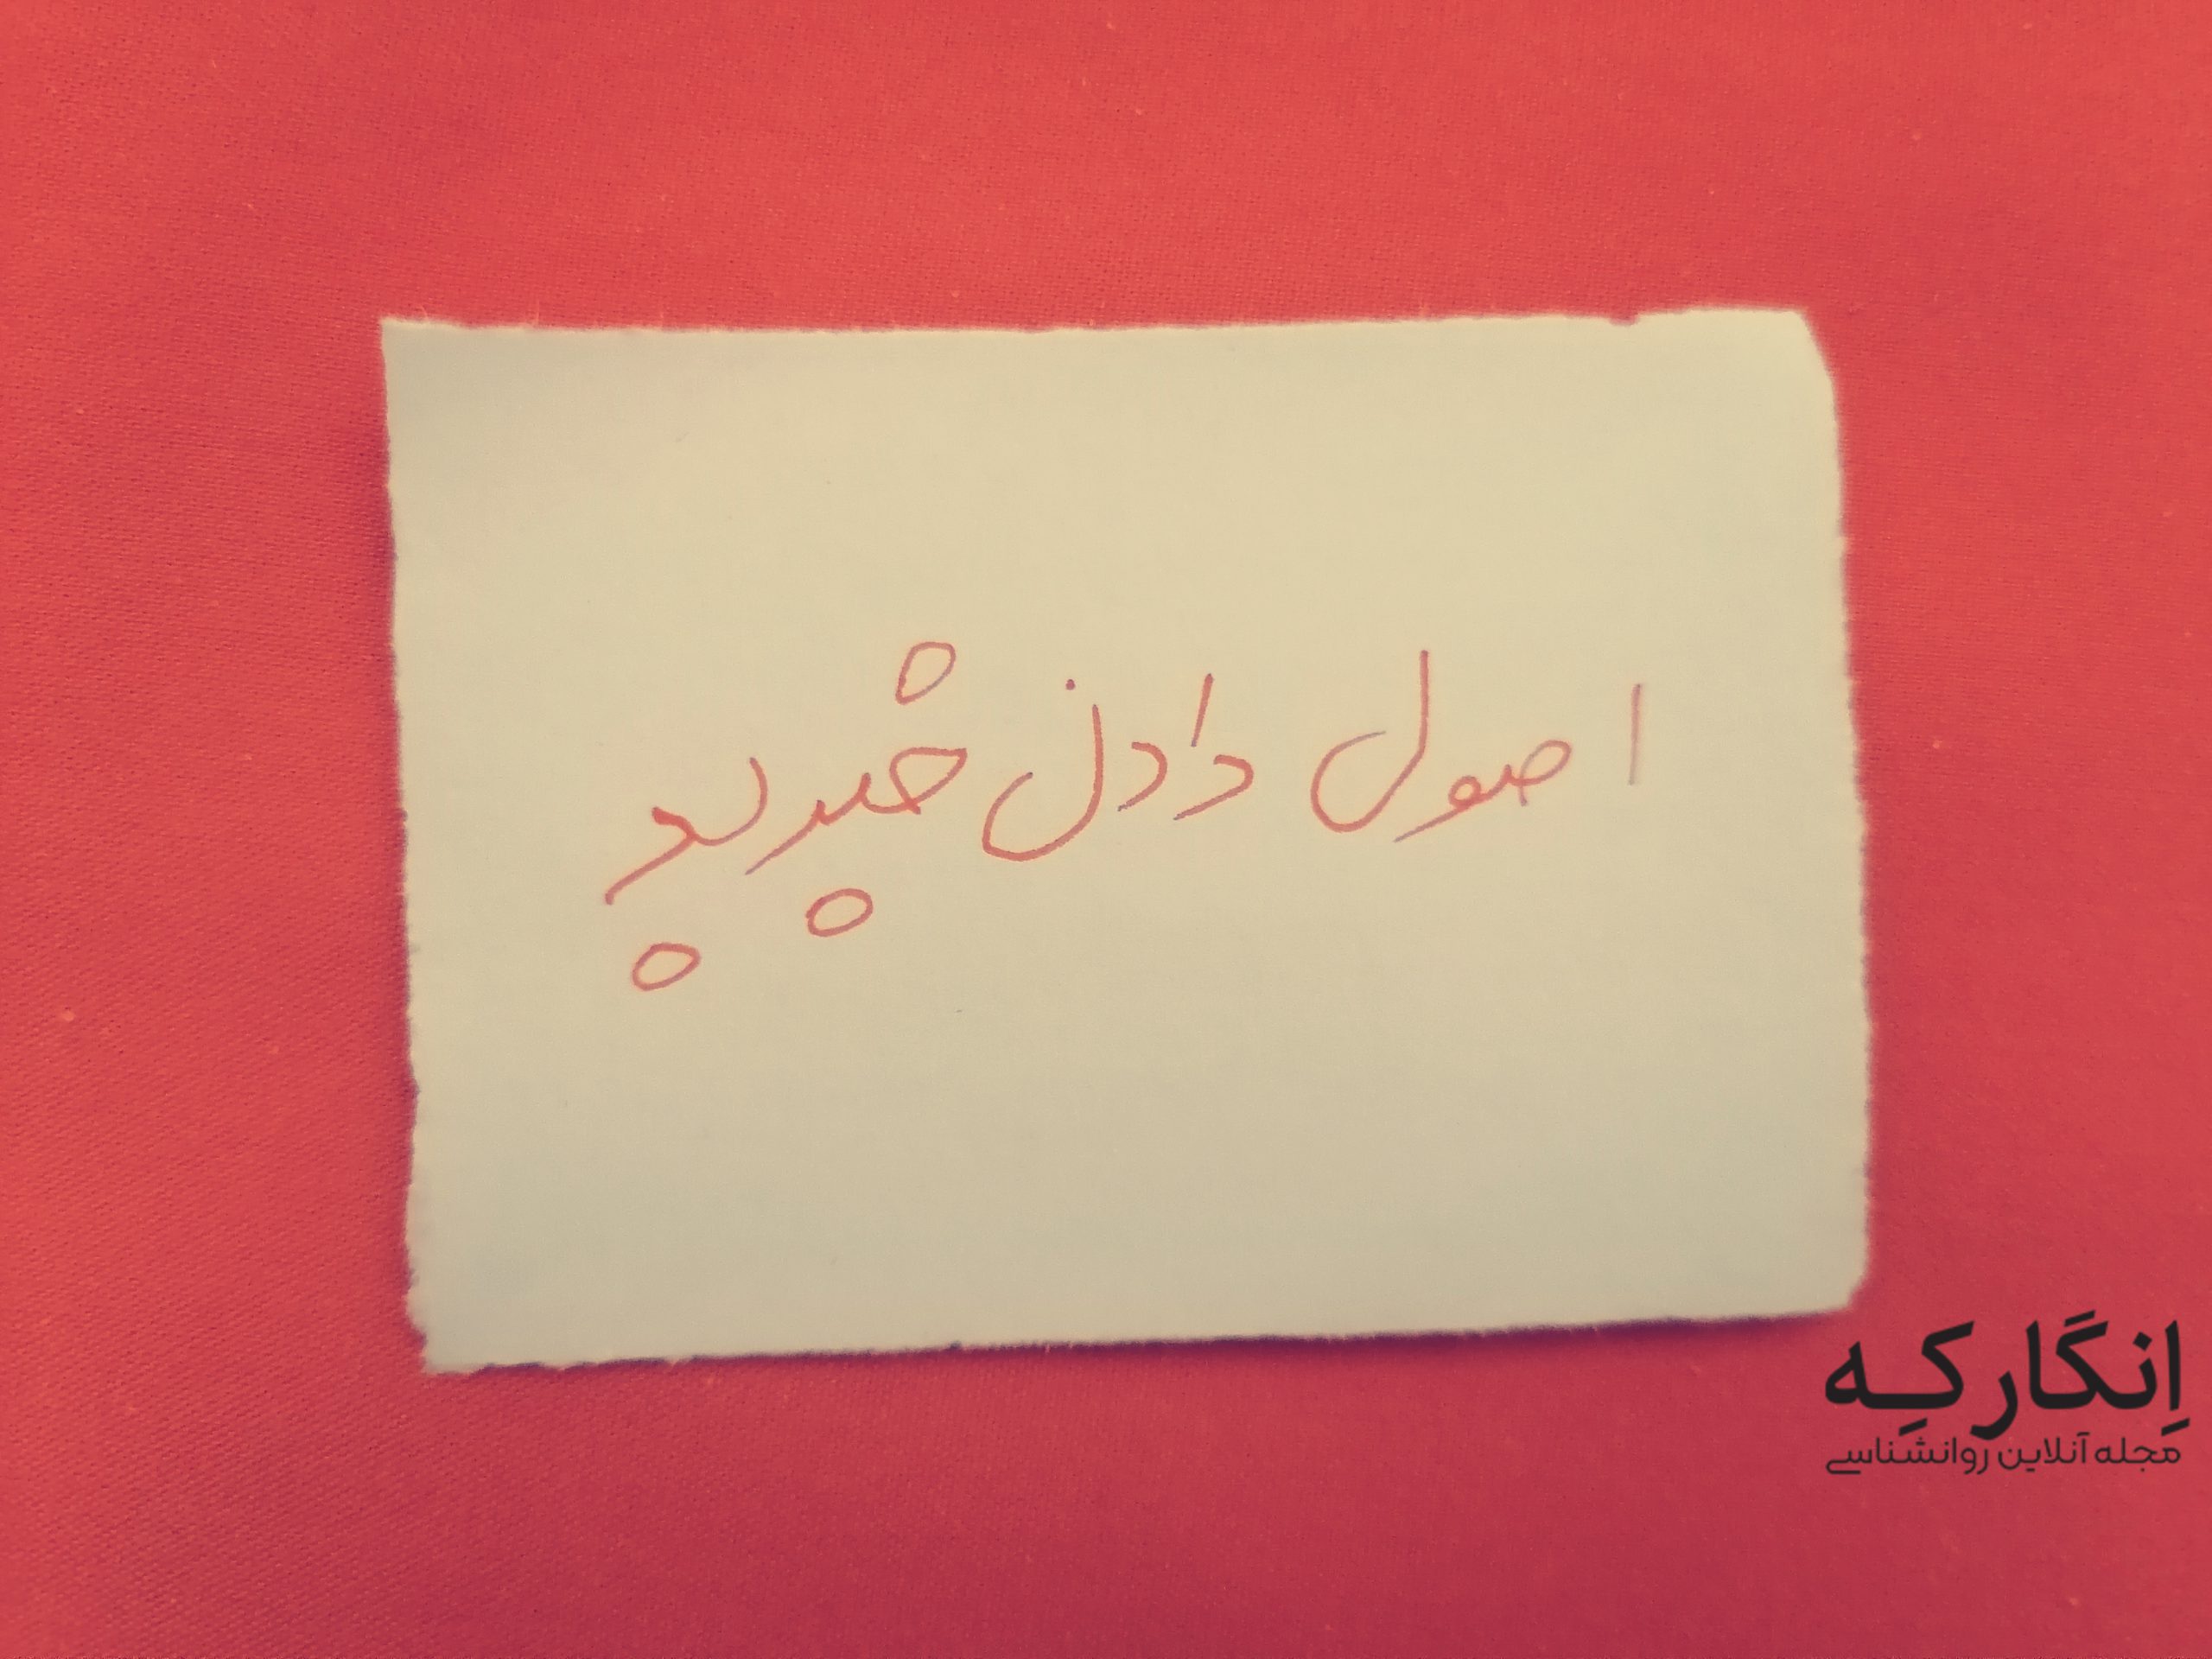 اصول دادن خبر بد
اِنگارکِه
مجله آنلاین روانشناسی